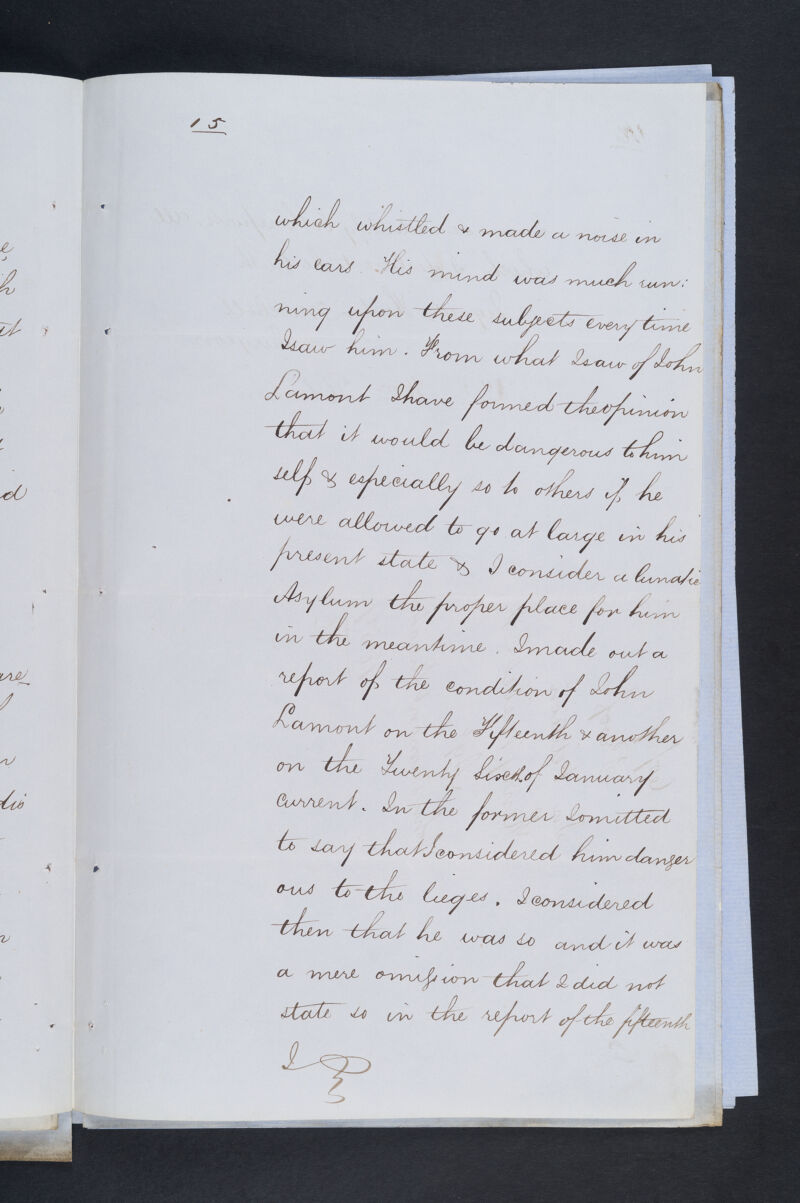 15
which whistled & made a noise in
his ears. His mind was much run:
ning upon these subjects every time
I saw him. From what I saw of John
Lamont I have formed the opinion
that it would be dangerous to him
self & especially so to others if he
were allowed to go at large in his
present state & I consider a lunatic
Asylum the proper place for him
in the meantime. I made out a
report of the condition of John
Lamont on the Fifteenth & another
on the Twenty Sixth of January
current. In the former I omitted
to say that I considered him danger
ous to the lieges. I considered
then that he was so and it was
a mere omission that I did not
state so in the report of the fifteenth
I
e
h
d
are
n
dis